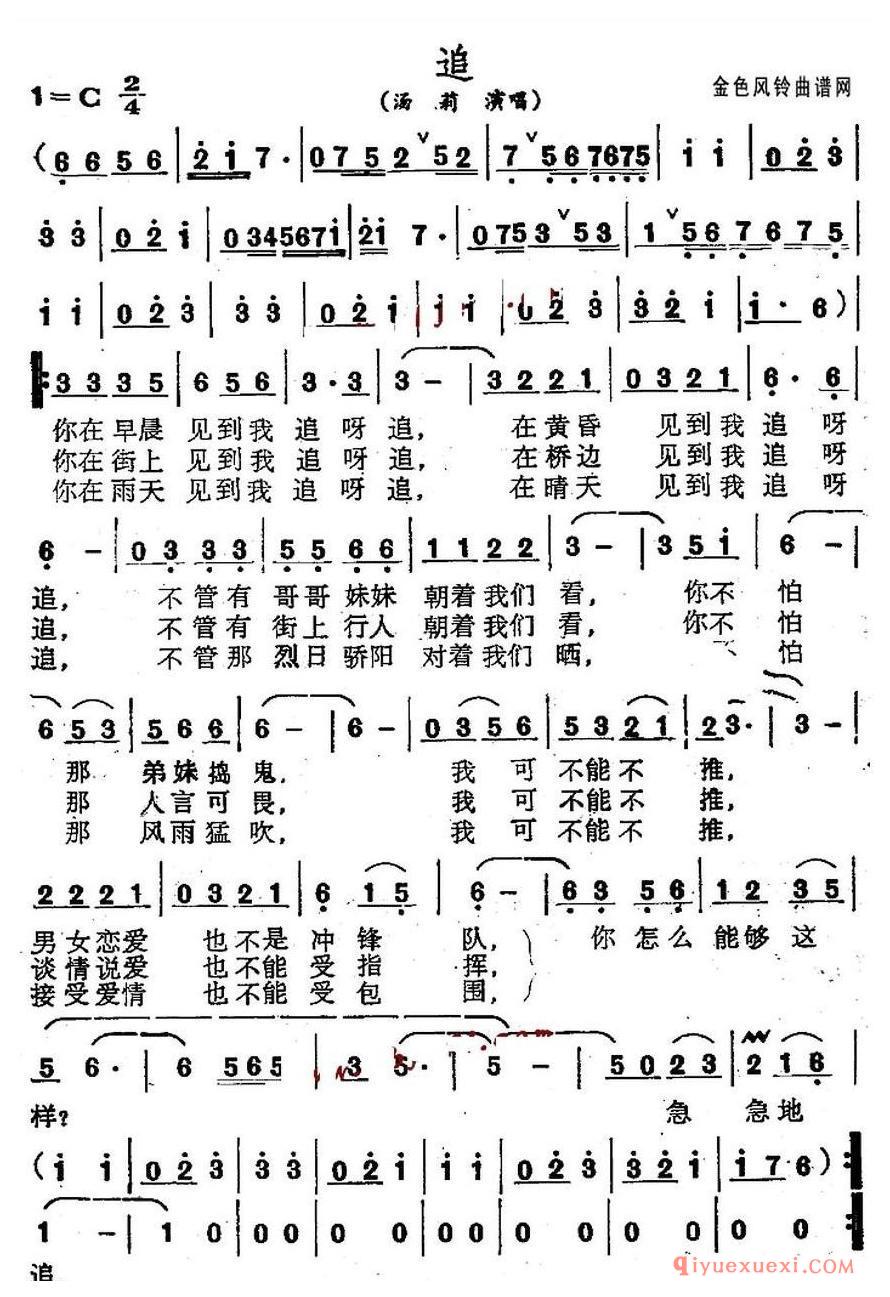 追
1=C 2/4
(汤 莉 演唱)
金色风铃曲谱网
(6 6 5 6 | 2 1 7· | 0 7 5 2 ∨ 5 2 | 7 ∨ 5 6 7 6 7 5 | i i | 0 2 3 |
3 3 | 0 2 i | 0 3 4 5 6 7 i | 2 i 7· | 0 7 5 3 ∨ 5 3 | 1 ∨ 5 6 7 6 7 5 |
i i | 0 2 3 | 3 3 | 0 2 i | i i | 0 2 3 | 3 2 i | i· 6) |
3 3 3 5 | 6 5 6 | 3· 3 | 3 - | 3 2 2 1 | 0 3 2 1 | 6· 6 |
你在早晨 见到我 追 呀 追, 在黄昏 见到我 追 呀
你在街上 见到我 追 呀 追, 在桥边 见到我 追 呀
你在雨天 见到我 追 呀 追, 在晴天 见到我 追 呀
6 - | 0 3 3 3 | 5 5 6 6 | 1 1 2 2 | 3 - | 3 5 i | 6 - |
追, 不管有 哥哥妹妹 朝着我们 看, 你不 怕
追, 不管有 街上行人 朝着我们 看, 你不 怕
追, 不管那 烈日骄阳 对着我们 晒, 怕
6 5 3 | 5 6 6 | 6 - | 6 | 0 3 5 6 | 5 3 2 1 | 2 3· | 3 - |
那 弟妹捣鬼, 我 可 不能不 推,
那 人言可畏, 我 可 不能不 推,
那 风雨猛吹, 我 可 不能不 推,
2 2 2 1 | 0 3 2 1 | 6 1 5 | 6 - | 6 3 5 6 | 1 2 3 5 |
男女恋爱 也不是 冲 锋 队, 你 怎么 能够 这
谈情说爱 也不能 受 指 挥,
接受爱情 也不能 受 包 围,
5 6· | 6 5 6 5 | 3 5· | 5 - | 5 0 2 3 | 2 1 6 |
样? 急 急地
(i i | 0 2 3 | 3 3 | 0 2 i | i i | 0 2 3 | 3 2 i | i 7 6) :|
1 - | 1 0 | 0 0 | 0 0 | 0 0 | 0 0 | 0 0 | 0 0 :|
追
Qiyuexuexi.COM